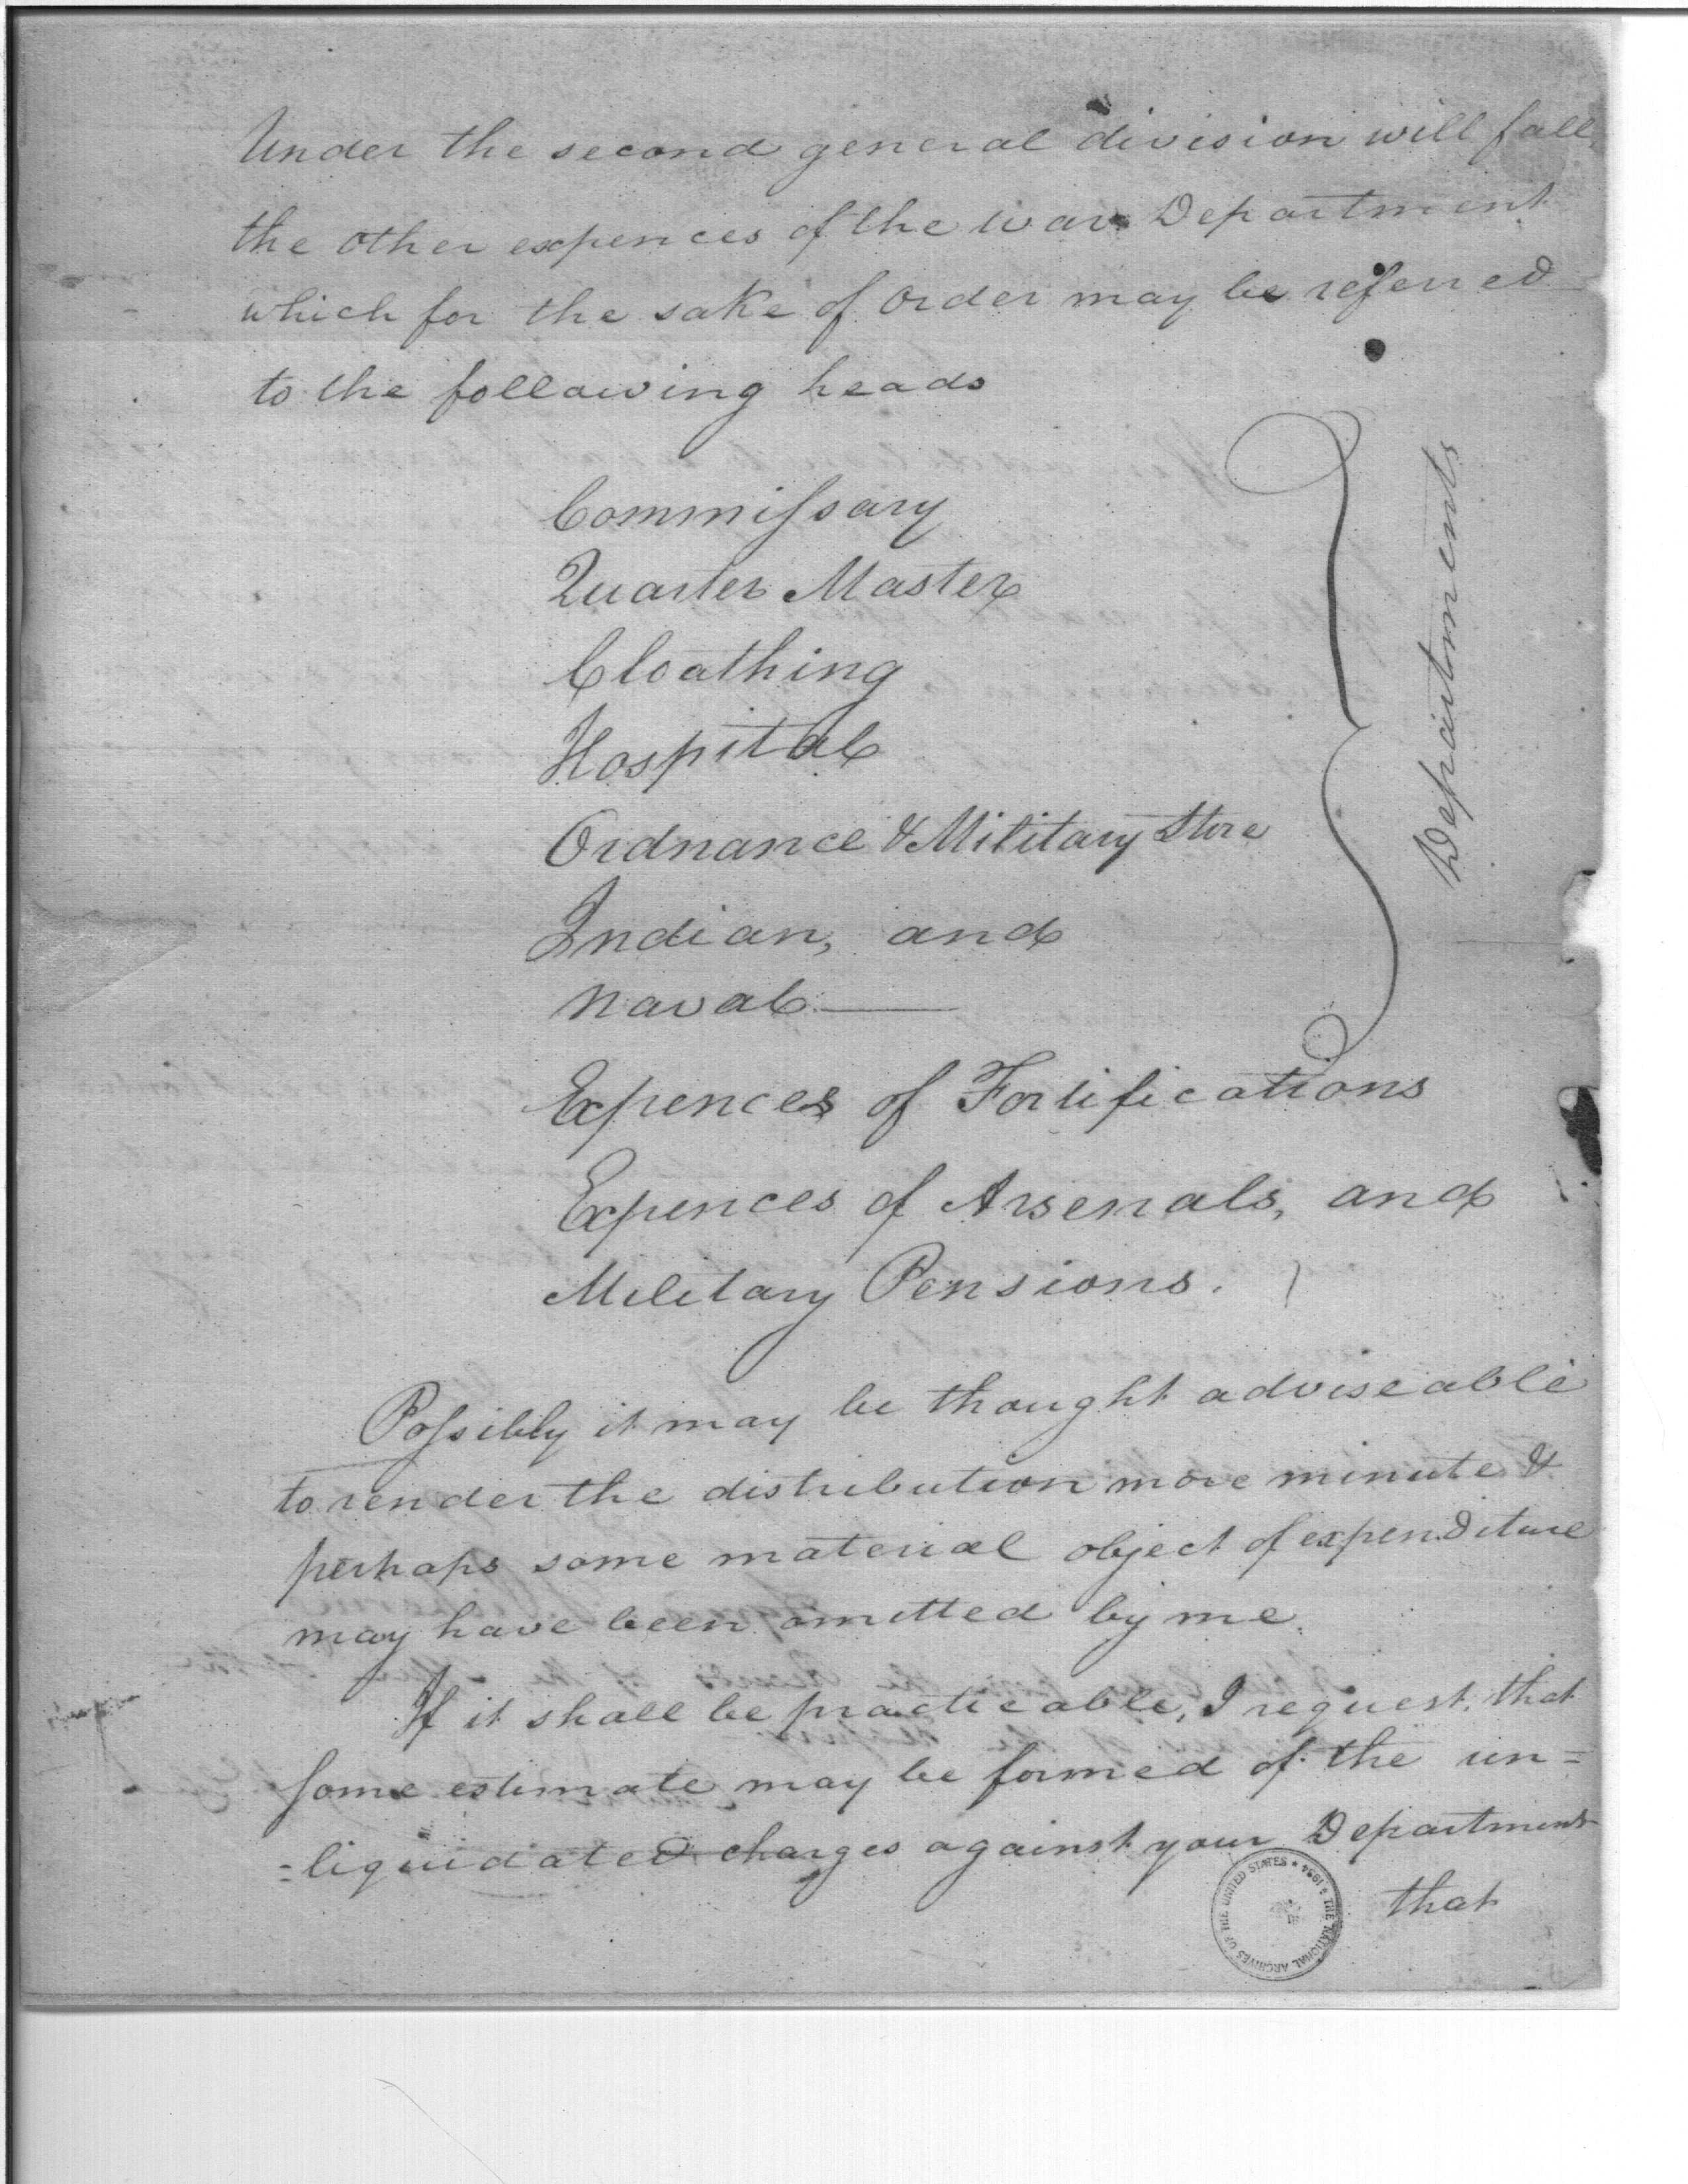 Under the second general division will fall
the other expences of the War Department
which for the sake of Order may be referred
to the following heads
Commiſsary
Quarter Master
Cloathing
Hospital
Ordnance & Military Store
Indian, and
Naval
Departments
Expences of Fortifications
Expences of Arsenals, and
Military Pensions.
Poſsibly it may be thought adviseable
to render the distribution more minute &
perhaps some material object of expenditure
may have been omitted by me.
If it shall be practicable, I request, that
some estimate may be formed of the un=
=liquidated charges against your Department
that
THE NATIONAL ARCHIVES OF THE UNITED STATES ★ 1934 ★